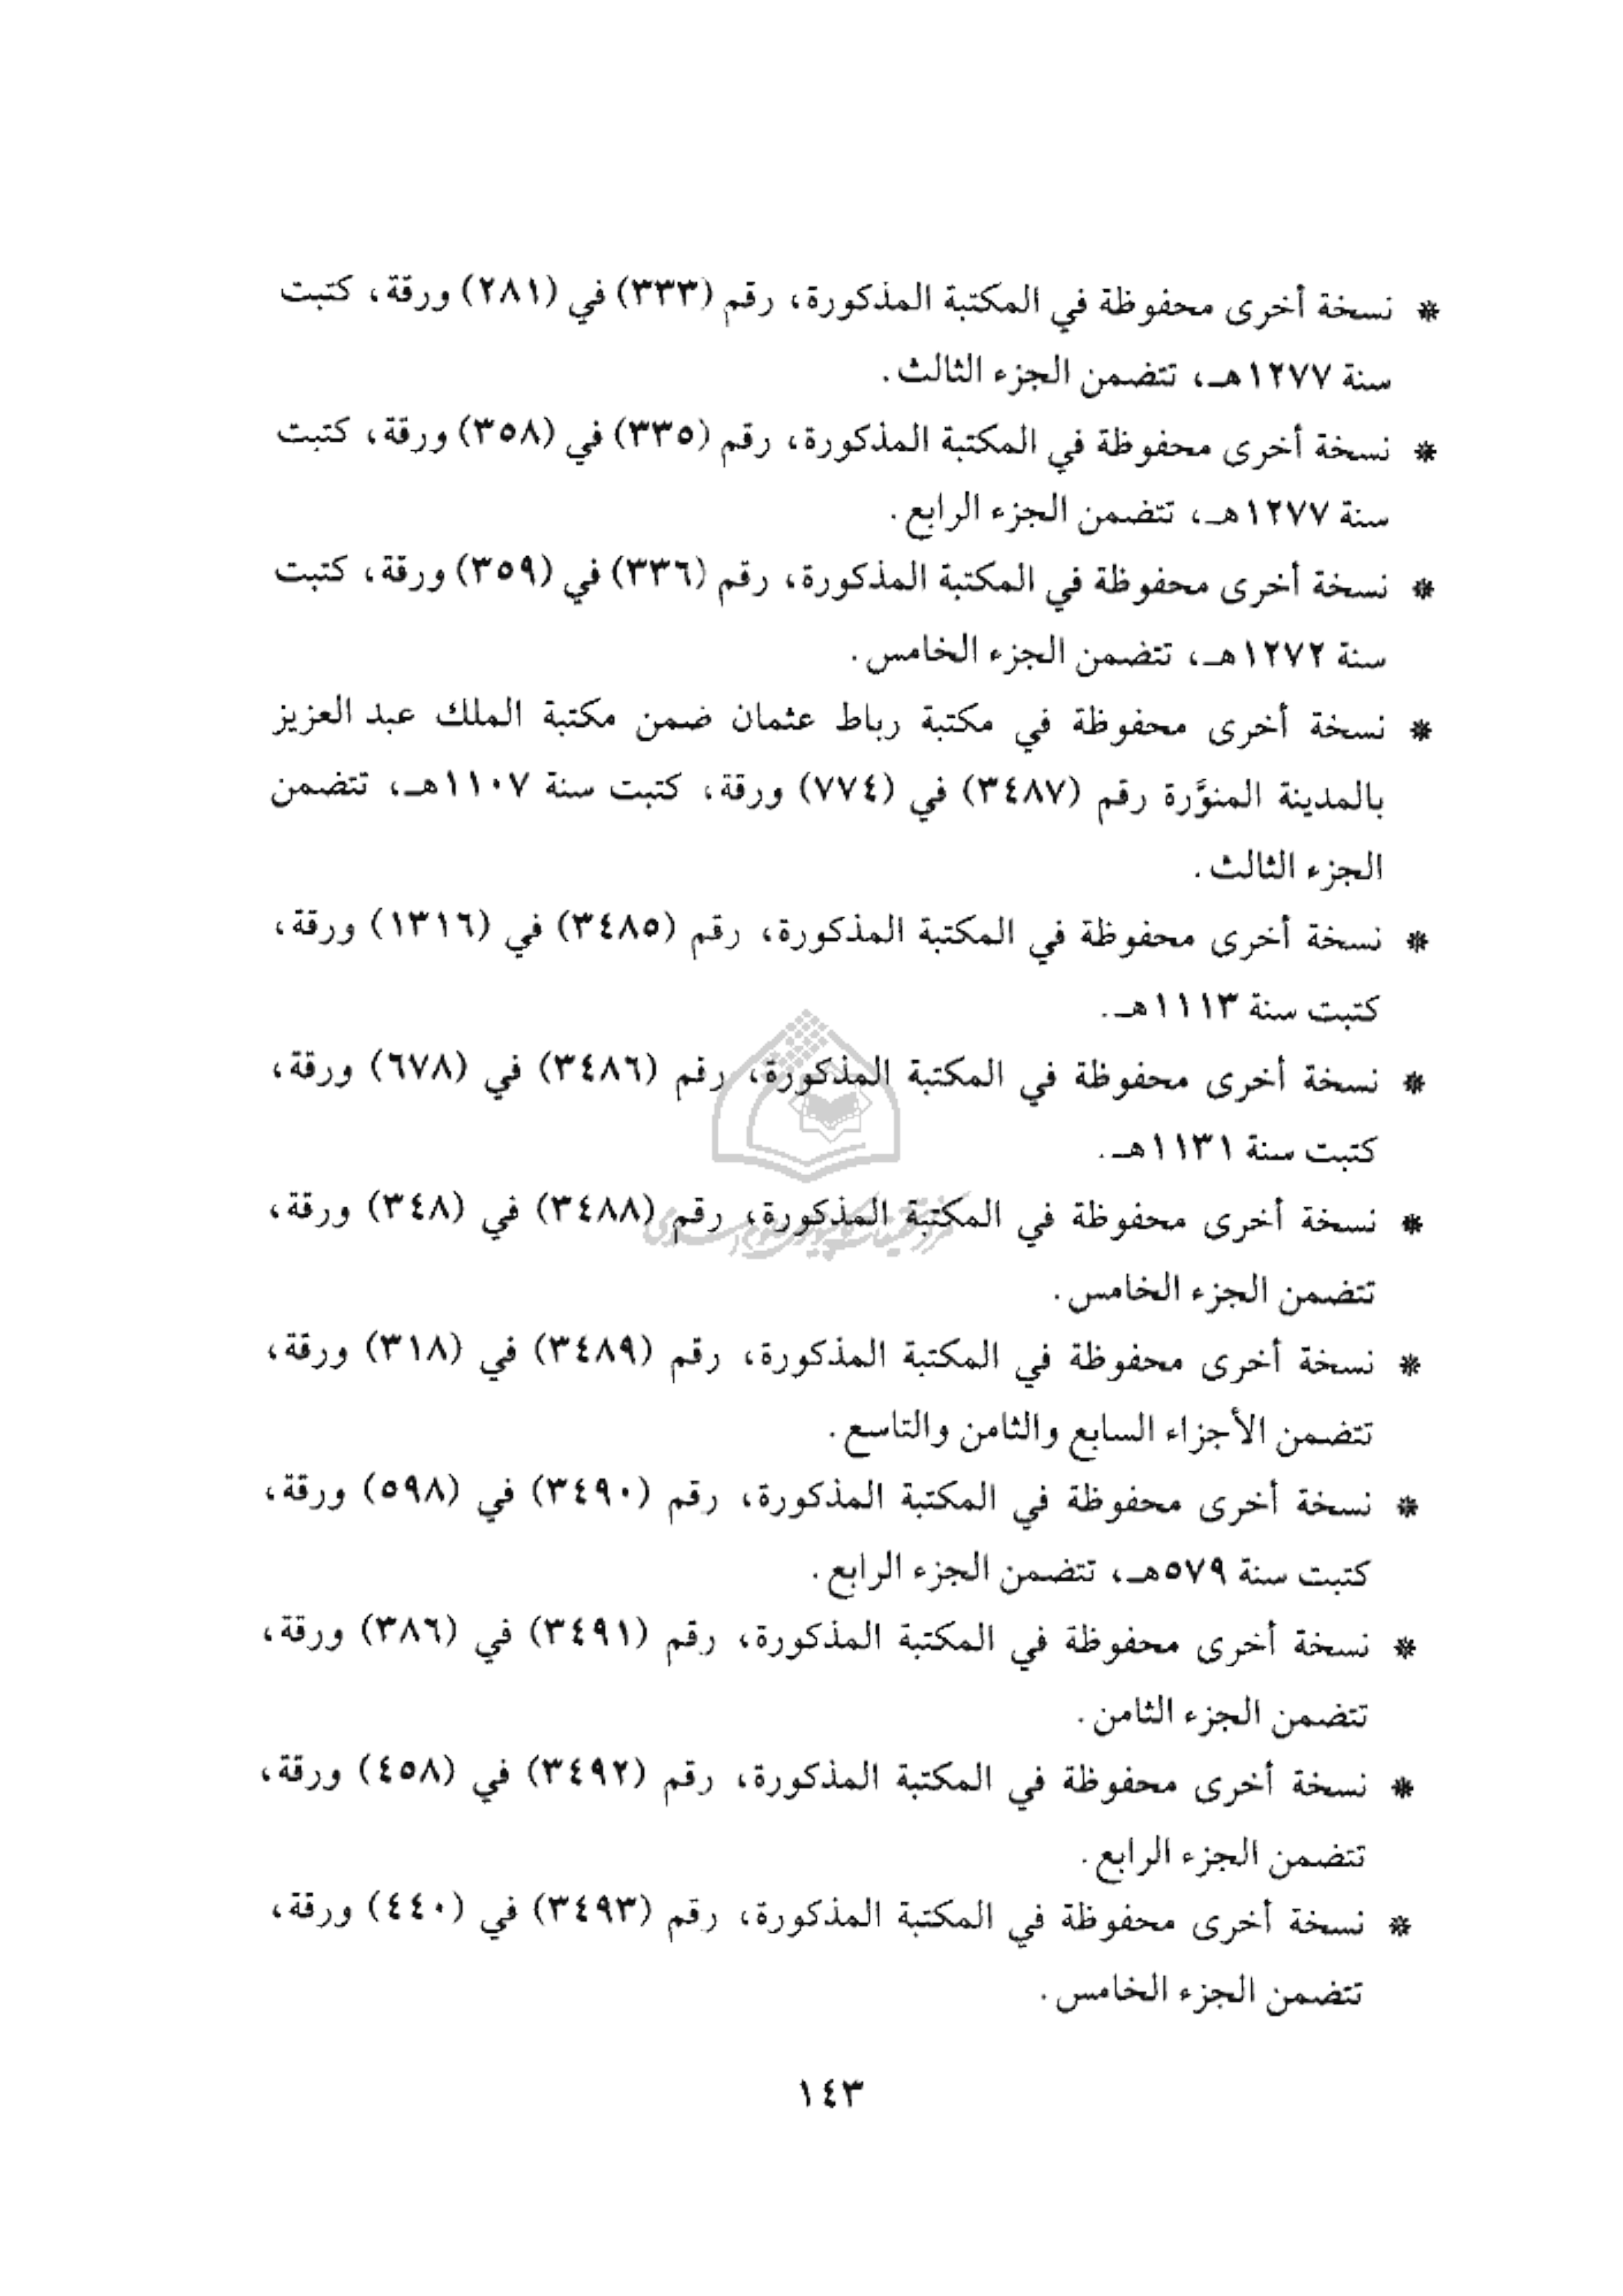 * نسخة أخرى محفوظة في المكتبة المذكورة، رقم (٣٣٣) في (٢٨١) ورقة، كتبت
سنة ١٢٧٧هـ، تتضمن الجزء الثالث.
* نسخة أخرى محفوظة في المكتبة المذكورة، رقم (٣٣٥) في (٣٥٨) ورقة، كتبت
سنة ١٢٧٧هـ، تتضمن الجزء الرابع.
* نسخة أخرى محفوظة في المكتبة المذكورة، رقم (٣٣٦) في (٣٥٩) ورقة، كتبت
سنة ١٢٧٢هـ، تتضمن الجزء الخامس.
* نسخة أخرى محفوظة في مكتبة رباط عثمان ضمن مكتبة الملك عبد العزيز
بالمدينة المنوَّرة رقم (٣٤٨٧) في (٧٧٤) ورقة، كتبت سنة ١١٠٧هـ، تتضمن
الجزء الثالث.
* نسخة أخرى محفوظة في المكتبة المذكورة، رقم (٣٤٨٥) في (١٣١٦) ورقة،
كتبت سنة ١١١٣هـ.
* نسخة أخرى محفوظة في المكتبة المذكورة، رقم (٣٤٨٦) في (٦٧٨) ورقة،
كتبت سنة ١١٣١هـ.
* نسخة أخرى محفوظة في المكتبة المذكورة، رقم (٣٤٨٨) في (٣٤٨) ورقة،
تتضمن الجزء الخامس.
* نسخة أخرى محفوظة في المكتبة المذكورة، رقم (٣٤٨٩) في (٣١٨) ورقة،
تتضمن الأجزاء السابع والثامن والتاسع.
* نسخة أخرى محفوظة في المكتبة المذكورة، رقم (٣٤٩٠) في (٥٩٨) ورقة،
كتبت سنة ٥٧٩هـ، تتضمن الجزء الرابع.
* نسخة أخرى محفوظة في المكتبة المذكورة، رقم (٣٤٩١) في (٣٨٦) ورقة،
تتضمن الجزء الثامن.
* نسخة أخرى محفوظة في المكتبة المذكورة، رقم (٣٤٩٢) في (٤٥٨) ورقة،
تتضمن الجزء الرابع.
* نسخة أخرى محفوظة في المكتبة المذكورة، رقم (٣٤٩٣) في (٤٤٠) ورقة،
تتضمن الجزء الخامس.
١٤٣